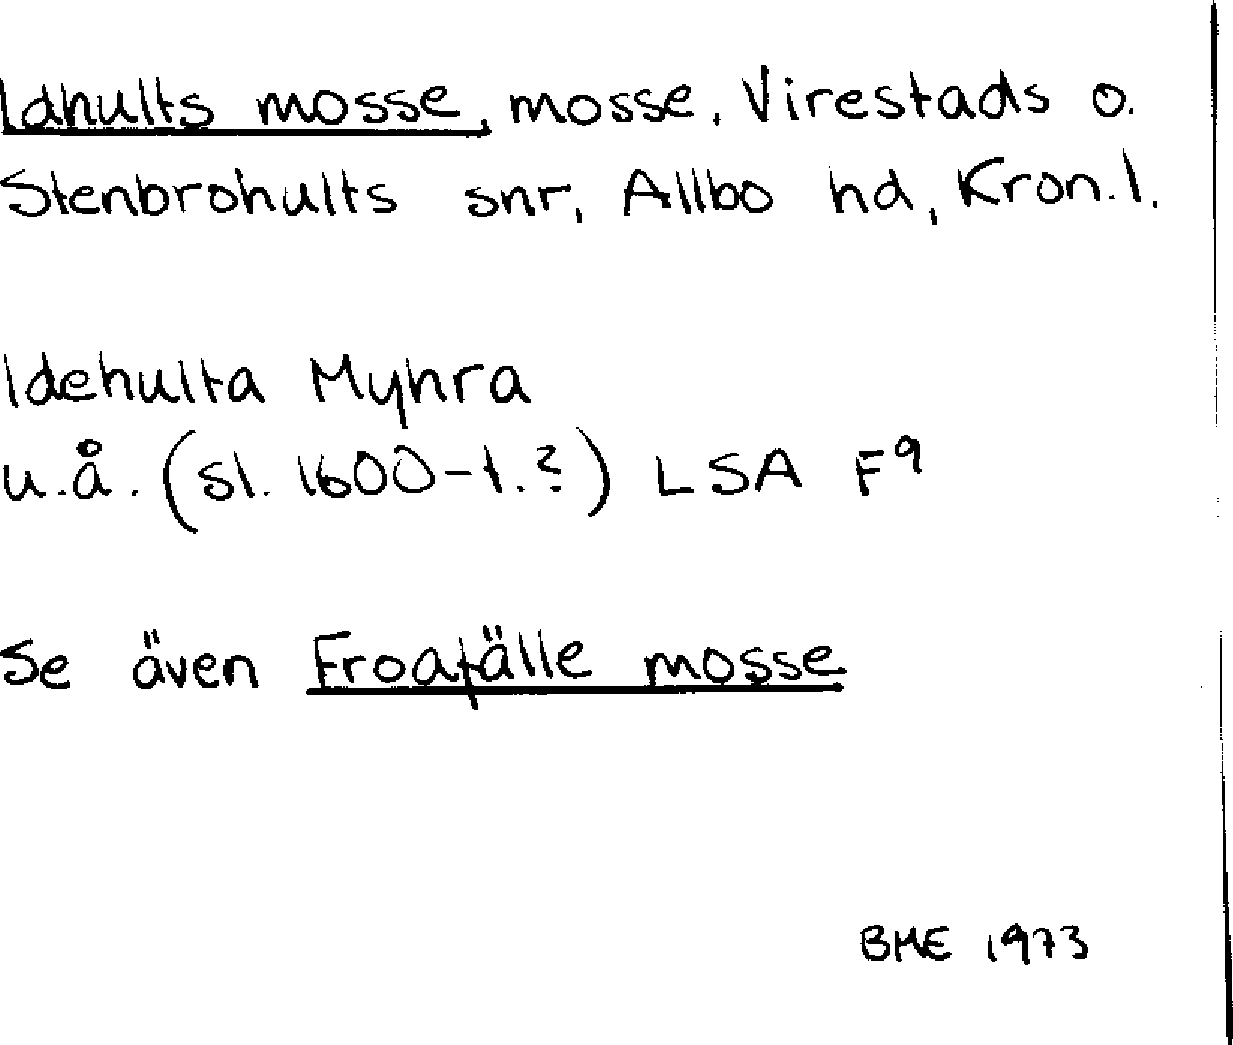 Idhults mosse, mosse, Virestads o.
Stenbrohults snr, Allbo hd, Kron.l.
Idehulta Myhra
u.å. (sl. 1600-t.?) LSA F9
Se även Froafälle mosse
BME 1973